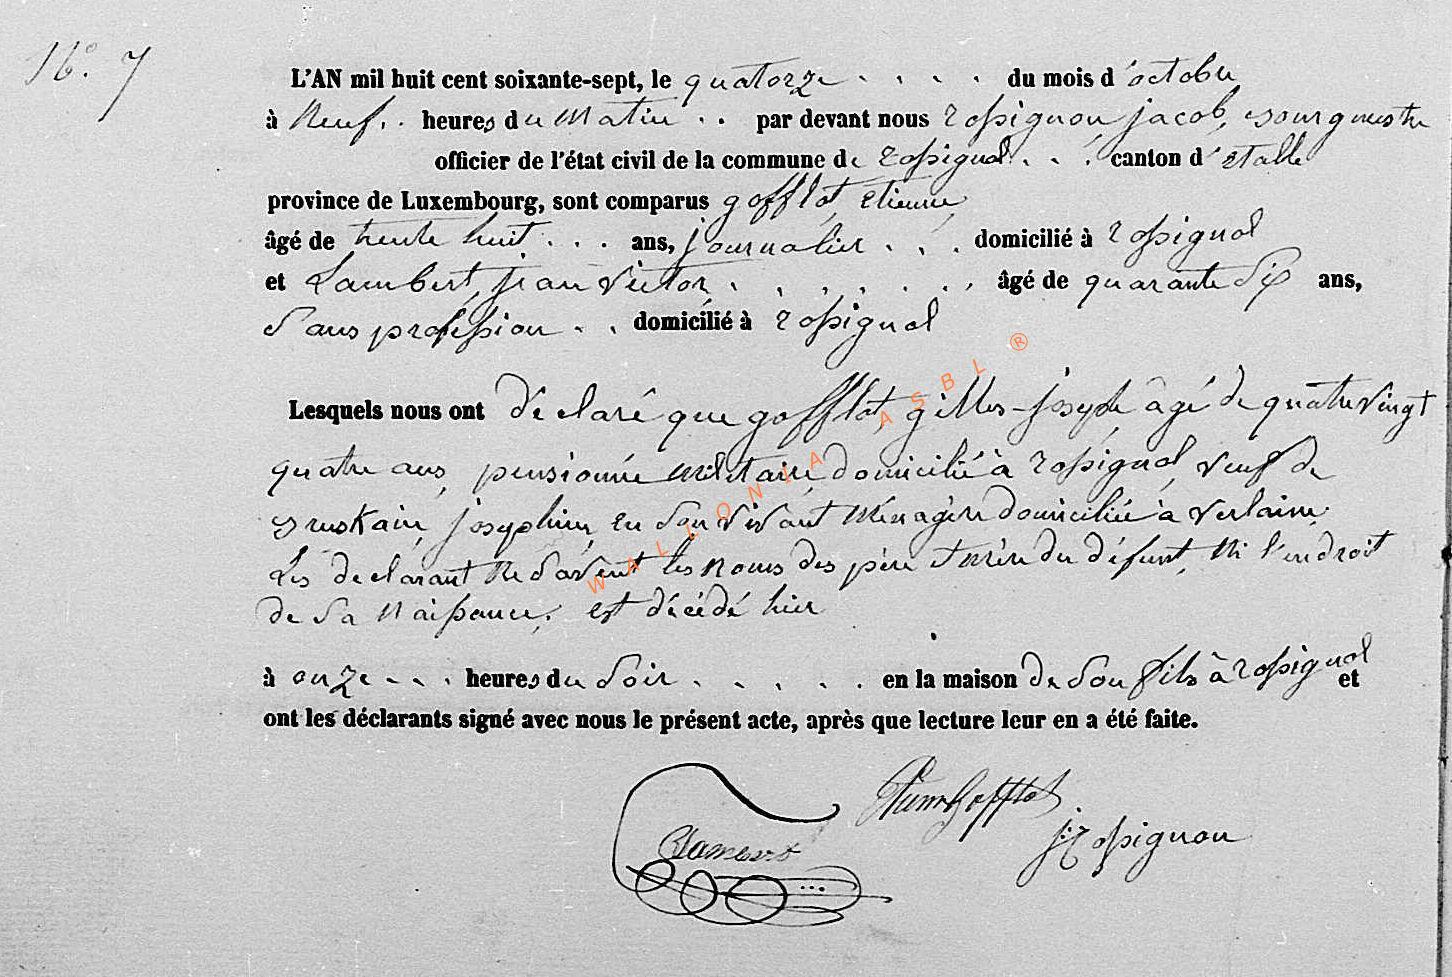 N°. 7
L'AN mil huit cent soixante-sept, le quatorze . . . . du mois d'octobre
à Neuf . . heures du Matin . . par devant nous rossignon, jacob, bourgmestre
officier de l'état civil de la commune de rossignol . . . canton d'etalle
province de Luxembourg, sont comparus gofflot, etienne,
âgé de trente huit . . . ans, journalier . . . domicilié à rossignol
et Lambert, jean victor, . . . . . . . âgé de quarante six ans,
Sans profession . . domicilié à rossignol
Lesquels nous ont déclaré que gofflot, gilles-joseph, âgé de quatre vingt
quatre ans, pensionnée militaire, domicilié à rossignol, veuf de
joséphine, en son vivant ménagère domiciliée à verlaine.
Les declarant Ne Savent les Noms des père et Mère du défunt, Ni l'endroit
de Sa Naissance, est décédé hier
à onze . . . heures du Soir . . . . . en la maison de Son fils à rossignol et
ont les déclarants signé avec nous le présent acte, après que lecture leur en a été faite.
Etienne Gofflot
Lambert
j: rossignon
WALLONIA ASBL ®